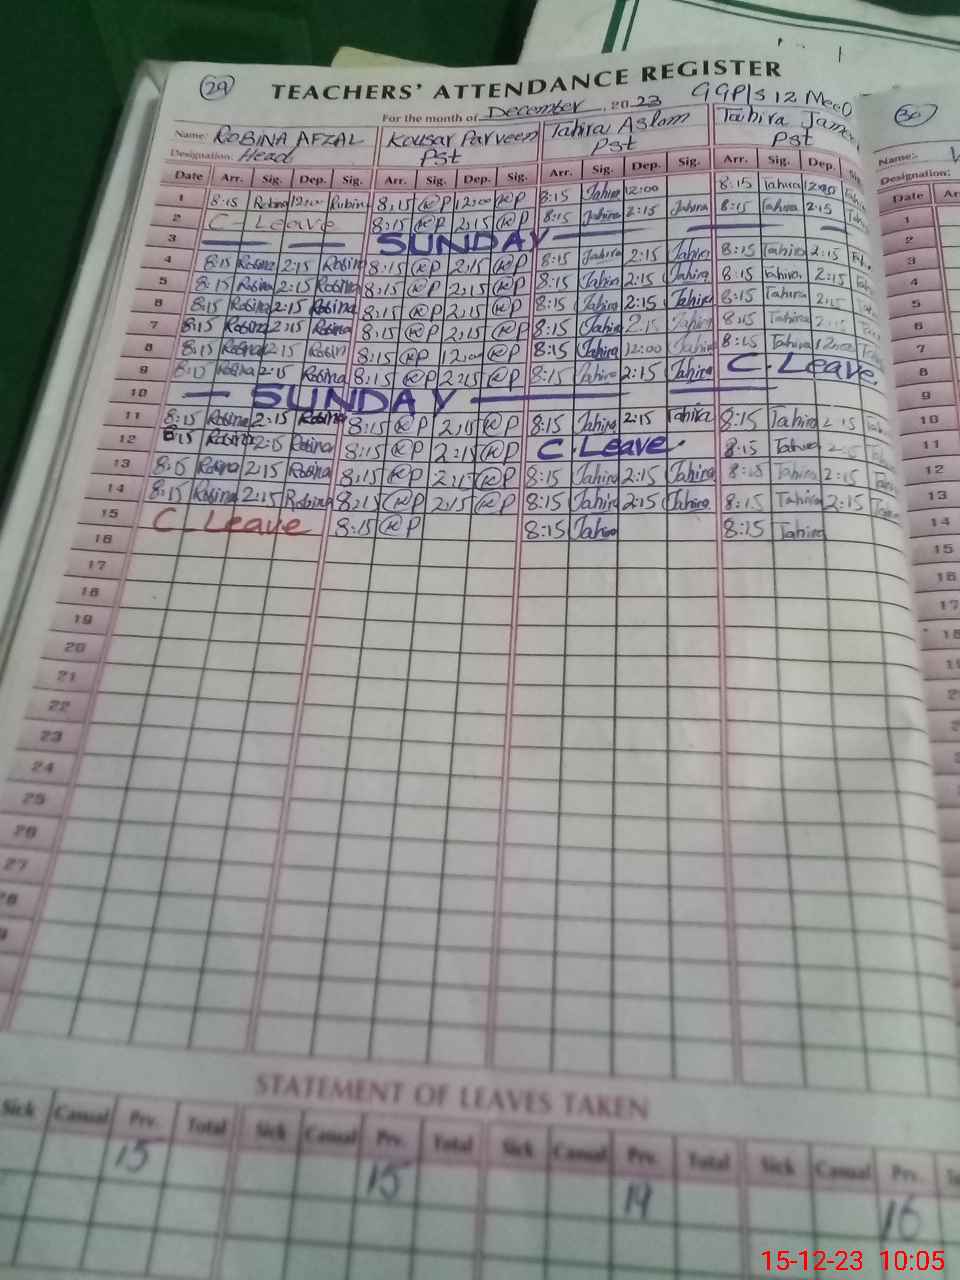 29 TEACHERS' ATTENDANCE REGISTER
For the month of December 2023 GGP/S 12 MeeO
Name: ROBINA AFZAL Kousar Parveen Tahira Aslam Tahira
Designation: Head Pst Pst Pst
Date Arr. Sig. Dep. Sig. Arr. Sig. Dep. Sig. Arr. Sig. Dep. Sig. Arr. Sig. Dep.
1 8:15 Robina 12:00 Robina 8:15 @P 12:00 @P 8:15 Tahira 12:00 8:15 Tahira
2 C - Leave 8:15 @P 2:15 @P 8:15 Tahira 2:15 Tahira 8:15 Tahira 2:15
3 SUNDAY
4 8:15 Robina 2:15 Robina 8:15 @P 2:15 @P 8:15 Tahira 2:15 Tahira 8:15 Tahira 2:15
5 8:15 Robina 2:15 Robina 8:15 @P 2:15 @P 8:15 Tahira 2:15 Tahira 8:15 Tahira 2:15
6 8:15 Robina 2:15 Robina 8:15 @P 2:15 @P 8:15 Tahira 2:15 Tahira 8:15 Tahira 2:15
7 8:15 Robina 2:15 Robina 8:15 @P 2:15 @P 8:15 Tahira 2:15 Tahira 8:15 Tahira 2:15
8 8:15 Robina 2:15 Robina 8:15 @P 12:00 @P 8:15 Tahira 12:00 Tahira 8:15 Tahira 12:00
9 8:15 Robina 2:15 Robina 8:15 @P 2:15 @P 8:15 Tahira 2:15 Tahira C. Leave
10 SUNDAY
11 8:15 Robina 2:15 Robina 8:15 @P 2:15 @P 8:15 Tahira 2:15 Tahira 8:15 Tahira 2:15
12 8:15 Robina 2:15 Robina 8:15 @P 2:15 @P C. Leave 8:15 Tahira
13 8:15 Robina 2:15 Robina 8:15 @P 2:15 @P 8:15 Tahira 2:15 Tahira 8:15 Tahira 2:15
14 8:15 Robina 2:15 Robina 8:15 @P 2:15 @P 8:15 Tahira 2:15 Tahira 8:15 Tahira 2:15
15 C - Leave 8:15 @P 8:15 Tahira 8:15 Tahira
16
17
18
19
20
21
22
23
24
25
26
27
STATEMENT OF LEAVES TAKEN
Sick Casual Prv. Total Sick Casual Prv. Total Sick Casual Prv. Total Sick Casual Prv.
15 15 19 16
30
Name:-
Designation:
Date
1
2
3
4
5
6
7
8
9
10
11
12
13
14
15
16
17
15-12-23 10:05